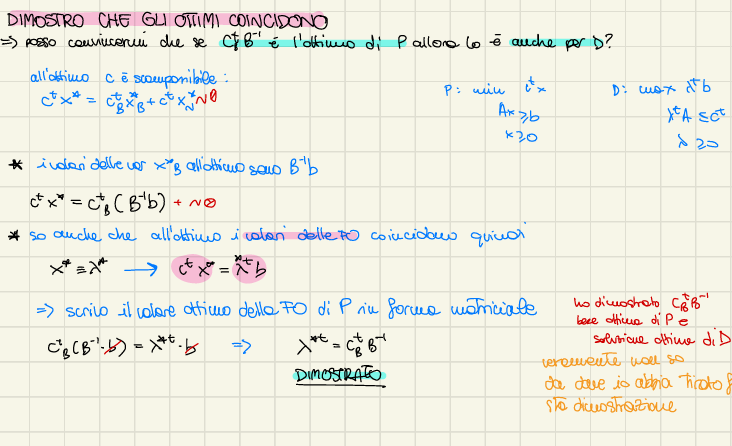 DIMOSTRO CHE GLI OTTIMI COINCIDONO
=> posso convincermi che se C_B^t B^-1 è l'ottimo di P allora lo è anche per D?
all'ottimo c è scomponibile:
c^t x* = c_B^t x*_B + c^t x*_N ~0
P: min c^t x
Ax ≥ b
x ≥ 0
D: max λ^t b
λ^t A ≤ c^t
λ ≥ 0
* i valori delle var x*_B all'ottimo sono B^-1 b
c^t x* = c_B^t (B^-1 b) + ~0
* so anche che all'ottimo i valori delle FO coincidono quindi
x* ≡ λ* → c^t x* = λ*^t b
=> scrivo il valore ottimo della FO di P in forma matriciale
c_B^t (B^-1 · b) = λ*^t · b => λ*^t = c_B^t B^-1
DIMOSTRATO
ho dimostrato C_B^t B^-1
base ottima di P e
soluzione ottima di D
veramente non so
da dove io abbia tirato f
sta dimostrazione